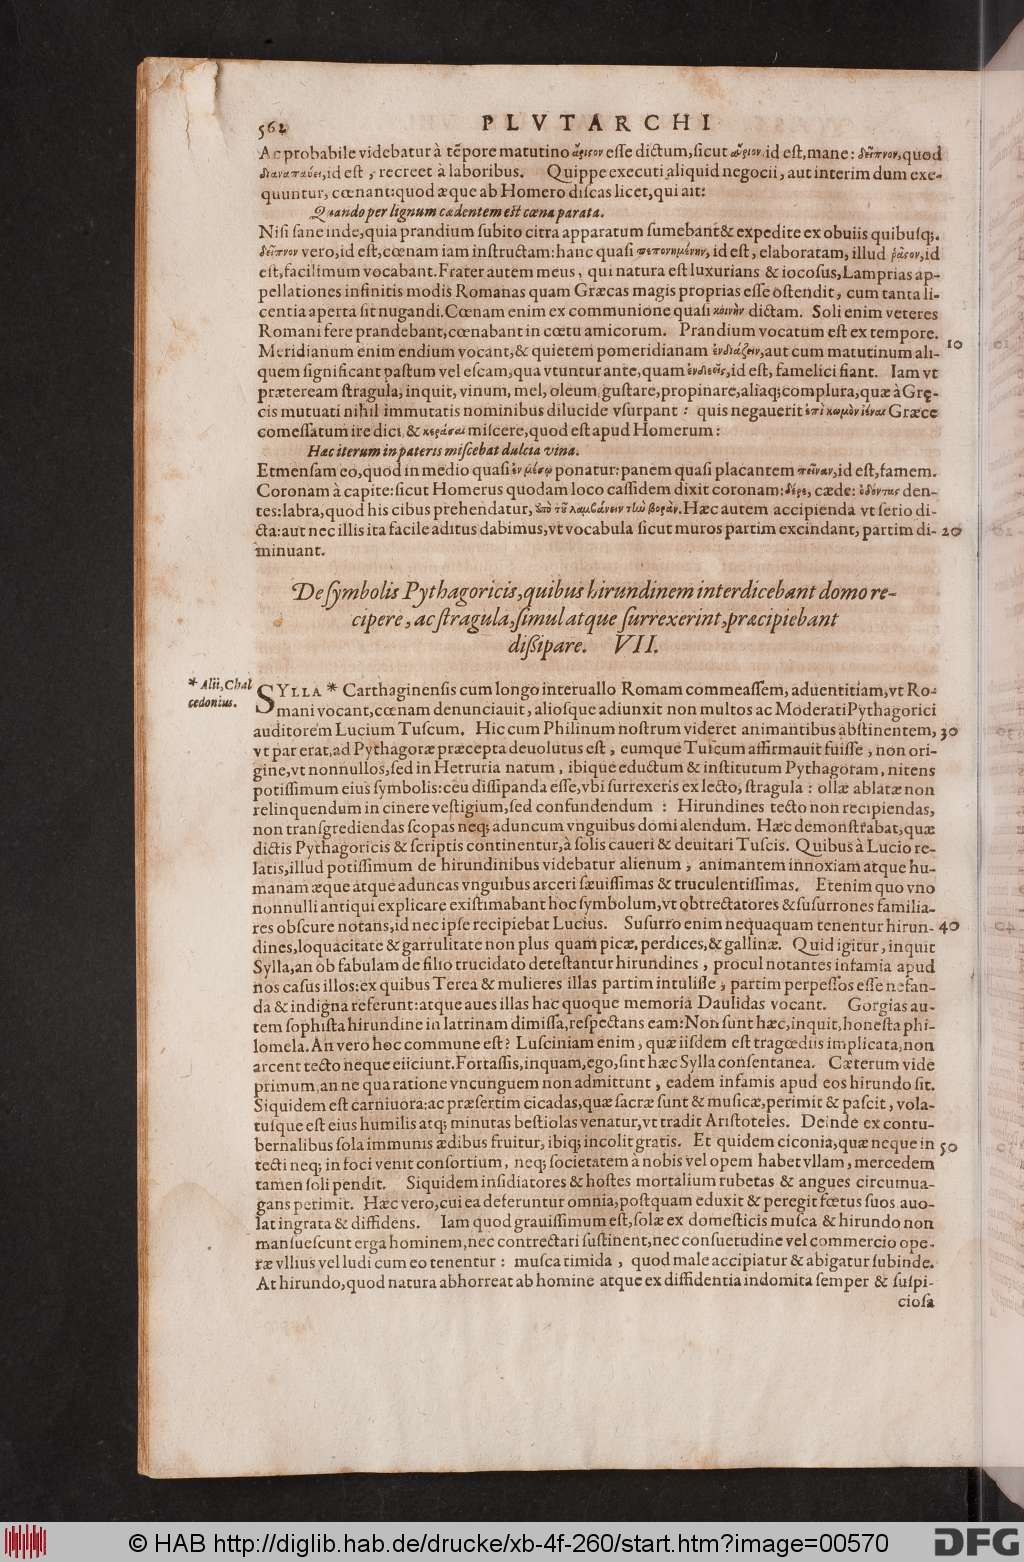 562 PLVTARCHI
Ac probabile videbatur à tẽpore matutino ἄριστον esse dictum, sicut αὔριον, id est, mane: δεῖπνον, quod
διαναπαύει, id est, recreet à laboribus. Quippe executi aliquid negocii, aut interim dum exe-
quuntur, cœnant: quod æque ab Homero discas licet, qui ait:
Quando per lignum cædentem est cœna parata.
Nisi sane inde, quia prandium subito citra apparatum sumebant & expedite ex obuiis quibusq;.
δεῖπνον vero, id est, cœnam iam instructam: hanc quasi πεπονημένην, id est, elaboratam, illud ῥᾶστον, id
est, facilimum vocabant. Frater autem meus, qui natura est luxurians & iocosus, Lamprias ap-
pellationes infinitis modis Romanas quam Græcas magis proprias esse ostendit, cum tanta li-
centia aperta sit nugandi. Cœnam enim ex communione quasi κοινὴν dictam. Soli enim veteres
Romani fere prandebant, cœnabant in cœtu amicorum. Prandium vocatum est ex tempore.
10
Meridianum enim endium vocant, & quietem pomeridianam ἐνδιάζειν, aut cum matutinum ali-
quem significant pastum vel escam, qua vtuntur ante, quam ἐνδιεῖς, id est, famelici fiant. Iam vt
præteream stragula, inquit, vinum, mel, oleum, gustare, propinare, aliaq; complura, quæ à Grę-
cis mutuati nihil immutatis nominibus dilucide vsurpant: quis negauerit ἐπὶ κωμὸν ἰέναι Græce
comessatum ire dici, & κεράσαι miscere, quod est apud Homerum:
Hæc iterum in pateris miscebat dulcia vina.
Et mensam eo, quod in medio quasi ἐν μέσῳ ponatur: panem quasi placantem πεῖναν, id est, famem.
Coronam à capite: sicut Homerus quodam loco cassidem dixit coronam: δέρε, cæde: ὀδόντας den-
tes: labra, quod his cibus prehendatur, ὑπὸ τοῦ λαμβάνειν τὴν βορὰν. Hæc autem accipienda vt serio di-
cta: aut nec illis ita facile aditus dabimus, vt vocabula sicut muros partim excindant, partim di- 20
minuant.
De symbolis Pythagoricis, quibus hirundinem interdicebant domo re-
cipere, ac stragula, simul atque surrexerint, præcipiebant
dissipare. VII.
* Alii, Chal
cedonius.
SYLLA * Carthaginensis cum longo interuallo Romam commeassem, aduentitiam, vt Ro-
mani vocant, cœnam denunciauit, aliosque adiunxit non multos ac Moderati Pythagorici
auditorem Lucium Tuscum. Hic cum Philinum nostrum videret animantibus abstinentem, 30
vt par erat, ad Pythagoræ præcepta deuolutus est, eumque Tuscum affirmauit fuisse, non ori-
gine, vt nonnullos, sed in Hetruria natum, ibique eductum & institutum Pythagoram, nitens
potissimum eius symbolis: ceu dissipanda esse, vbi surrexeris ex lecto, stragula: ollæ ablatæ non
relinquendum in cinere vestigium, sed confundendum: Hirundines tecto non recipiendas,
non transgrediendas scopas neq; aduncum vnguibus domi alendum. Hæc demonstrabat, quæ
dictis Pythagoricis & scriptis continentur, à solis caueri & deuitari Tuscis. Quibus à Lucio re-
latis, illud potissimum de hirundinibus videbatur alienum, animantem innoxiam atque hu-
manam æque atque aduncas vnguibus arceri sæuissimas & truculentissimas. Etenim quo vno
nonnulli antiqui explicare existimabant hoc symbolum, vt obtrectatores & susurrones familia-
res obscure notans, id nec ipse recipiebat Lucius. Susurro enim nequaquam tenentur hirun- 40
dines, loquacitate & garrulitate non plus quam picæ, perdices, & gallinæ. Quid igitur, inquit
Sylla, an ob fabulam de filio trucidato detestantur hirundines, procul notantes infamia apud
nos casus illos: ex quibus Terea & mulieres illas partim intulisse, partim perpessos esse nefan-
da & indigna referunt: atque aues illas hac quoque memoria Daulidas vocant. Gorgias au-
tem sophista hirundine in latrinam dimissa, respectans eam: Non sunt hæc, inquit, honesta phi-
lomela. An vero hoc commune est? Lusciniam enim, quæ iisdem est tragœdiis implicata, non
arcent tecto neque eiiciunt. Fortassis, inquam, ego, sint hæc Sylla consentanea. Cæterum vide
primum, an ne qua ratione vncunguem non admittunt, eadem infamis apud eos hirundo sit.
Siquidem est carniuora: ac præsertim cicadas, quæ sacræ sunt & musicæ, perimit & pascit, vola-
tusque est eius humilis atq; minutas bestiolas venatur, vt tradit Aristoteles. Deinde ex contu-
bernalibus sola immunis ædibus fruitur, ibiq; incolit gratis. Et quidem ciconia, quæ neque in 50
tecti neq; in foci venit consortium, neq; societatem à nobis vel opem habet vllam, mercedem
tamen soli pendit. Siquidem insidiatores & hostes mortalium rubetas & angues circumua-
gans perimit. Hæc vero, cui ea deferuntur omnia, postquam eduxit & peregit fœtus suos auo-
lat ingrata & diffidens. Iam quod grauissimum est, solæ ex domesticis musca & hirundo non
mansuescunt erga hominem, nec contrectari sustinent, nec consuetudine vel commercio ope-
ræ vllius vel ludi cum eo tenentur: musca timida, quod male accipiatur & abigatur subinde.
At hirundo, quod natura abhorreat ab homine atque ex diffidentia indomita semper & suspi-
ciosa
© HAB http://diglib.hab.de/drucke/xb-4f-260/start.htm?image=00570
DFG